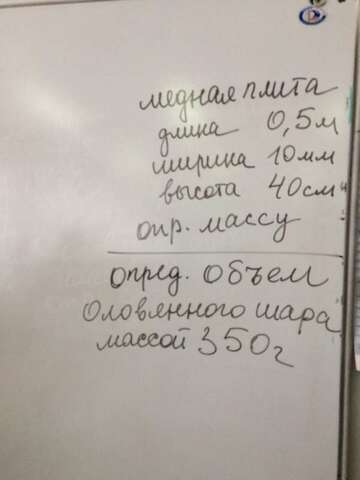 медная плита
длина 0,5м
ширина 10мм
высота 40см
опр. массу
опред. объем
оловянного шара
массой 350г